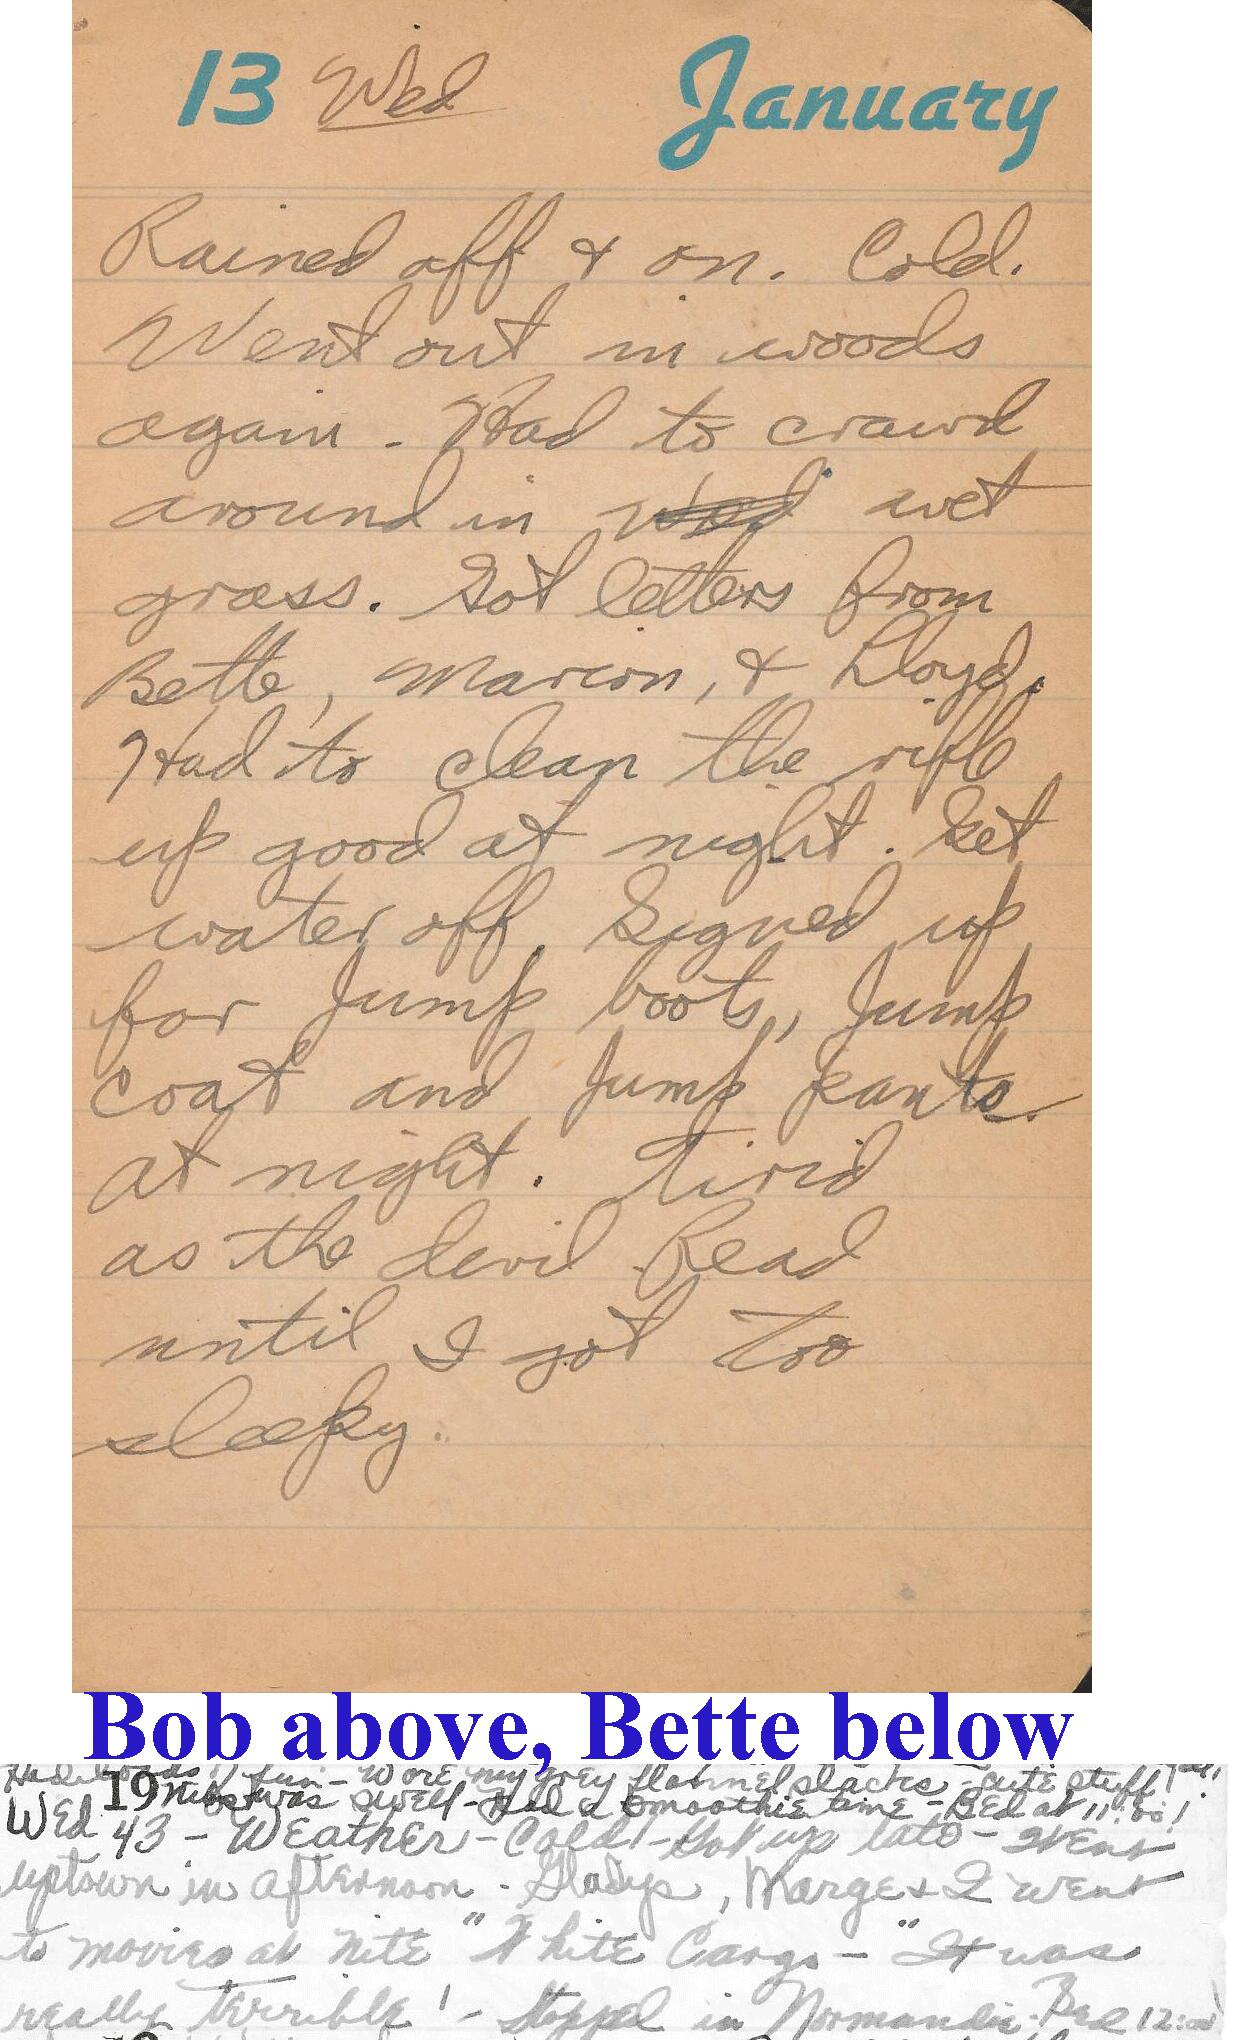 13 Wed January
Rained off & on. Cold.
Went out in woods
again - Had to crawl
around in wet
grass. Got letters from
Bette, Marion, & Lloyd.
Had to clean the rifle
up good at night. Get
water off. Signed up
for Jump boots, Jump
coat and Jump pants
at night. Tired
as the devil Read
until I got too
sleepy.
Bob above, Bette below
fun - Wore my grey flannel slacks - cute stuff
was swell - Had a smoothie time - Bed at 11:00!
Wed 1943 - Weather - Cold! - Got up late - Went
uptown in afternoon - Gladys, Marge & I went
to movies at nite "White Cargo -" It was
really terrible! - Stopped in Normandie - Bed 12:00